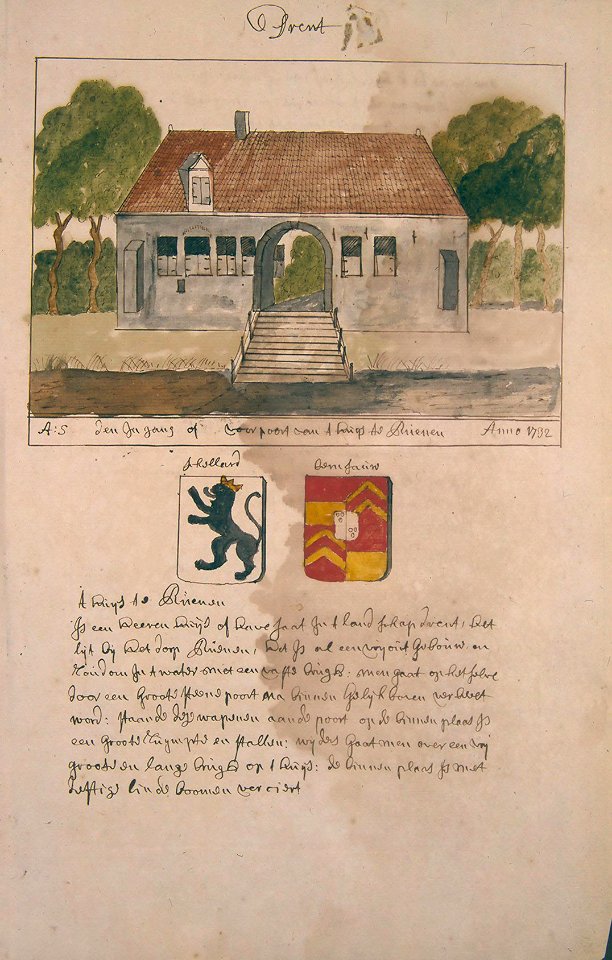 Drent
A:S den In gang of voorpoort van t huijs te Ruenen Anno 1732
schollard
t huijs te Ruenen
Is een heeren huijs of have saat In t land schap drent, het
lijt bij het dorp Ruenen, het Is al een vrij oüt Gebouw en
rondom In t water met een vaste brugh: men gaat op het selve
door een Groote steene poort na binnen Gelijk boven verbeelt
word: staande dese wapenen aan de poort op de binnen plaes Is
een Groote ruijmte en stallen: wijders Gaat men over een vrij
groote en lange brugh op t huijs: de binnen plaes Is met
heftige linde boomen verciert